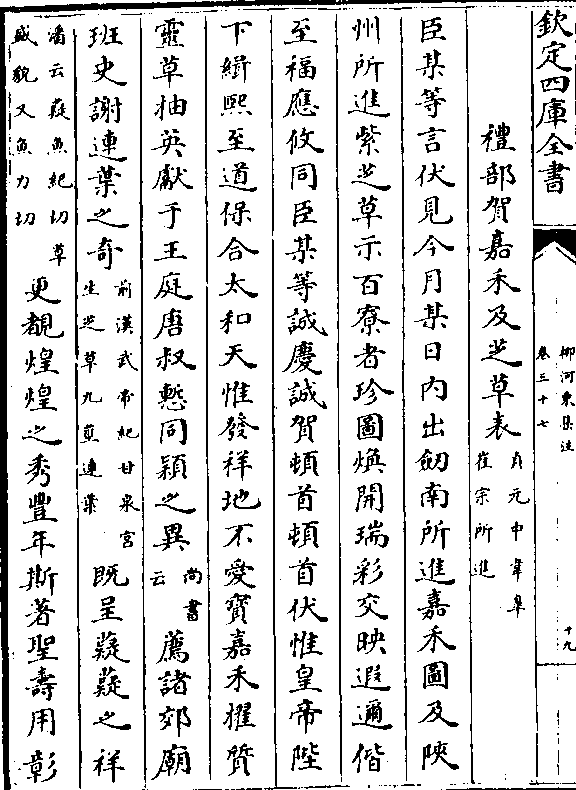 欽定四庫全書
柳河東集注
卷三十七
十九
禮部賀嘉禾及芝草表
貞元中韋臯
崔宗所進
臣某等言伏見今月某日内出劒南所進嘉禾圖及陜
州所進紫芝草示百寮者珍圖煥開瑞彩交映遐邇偕
至福應攸同臣某等誠慶誠賀頓首頓首伏惟皇帝陛
下緝熙至道保合太和天惟發祥地不愛寶嘉禾擢質
靈草抽英獻于王庭唐叔慙同穎之異
尚書
云
薦諸郊廟
班史謝連葉之奇
前漢武帝紀甘泉宮
生芝草九莖連葉
既呈薿薿之祥
潘云薿魚紀切草
盛貌又魚力切
更覩煌煌之秀豐年斯著聖壽用彰